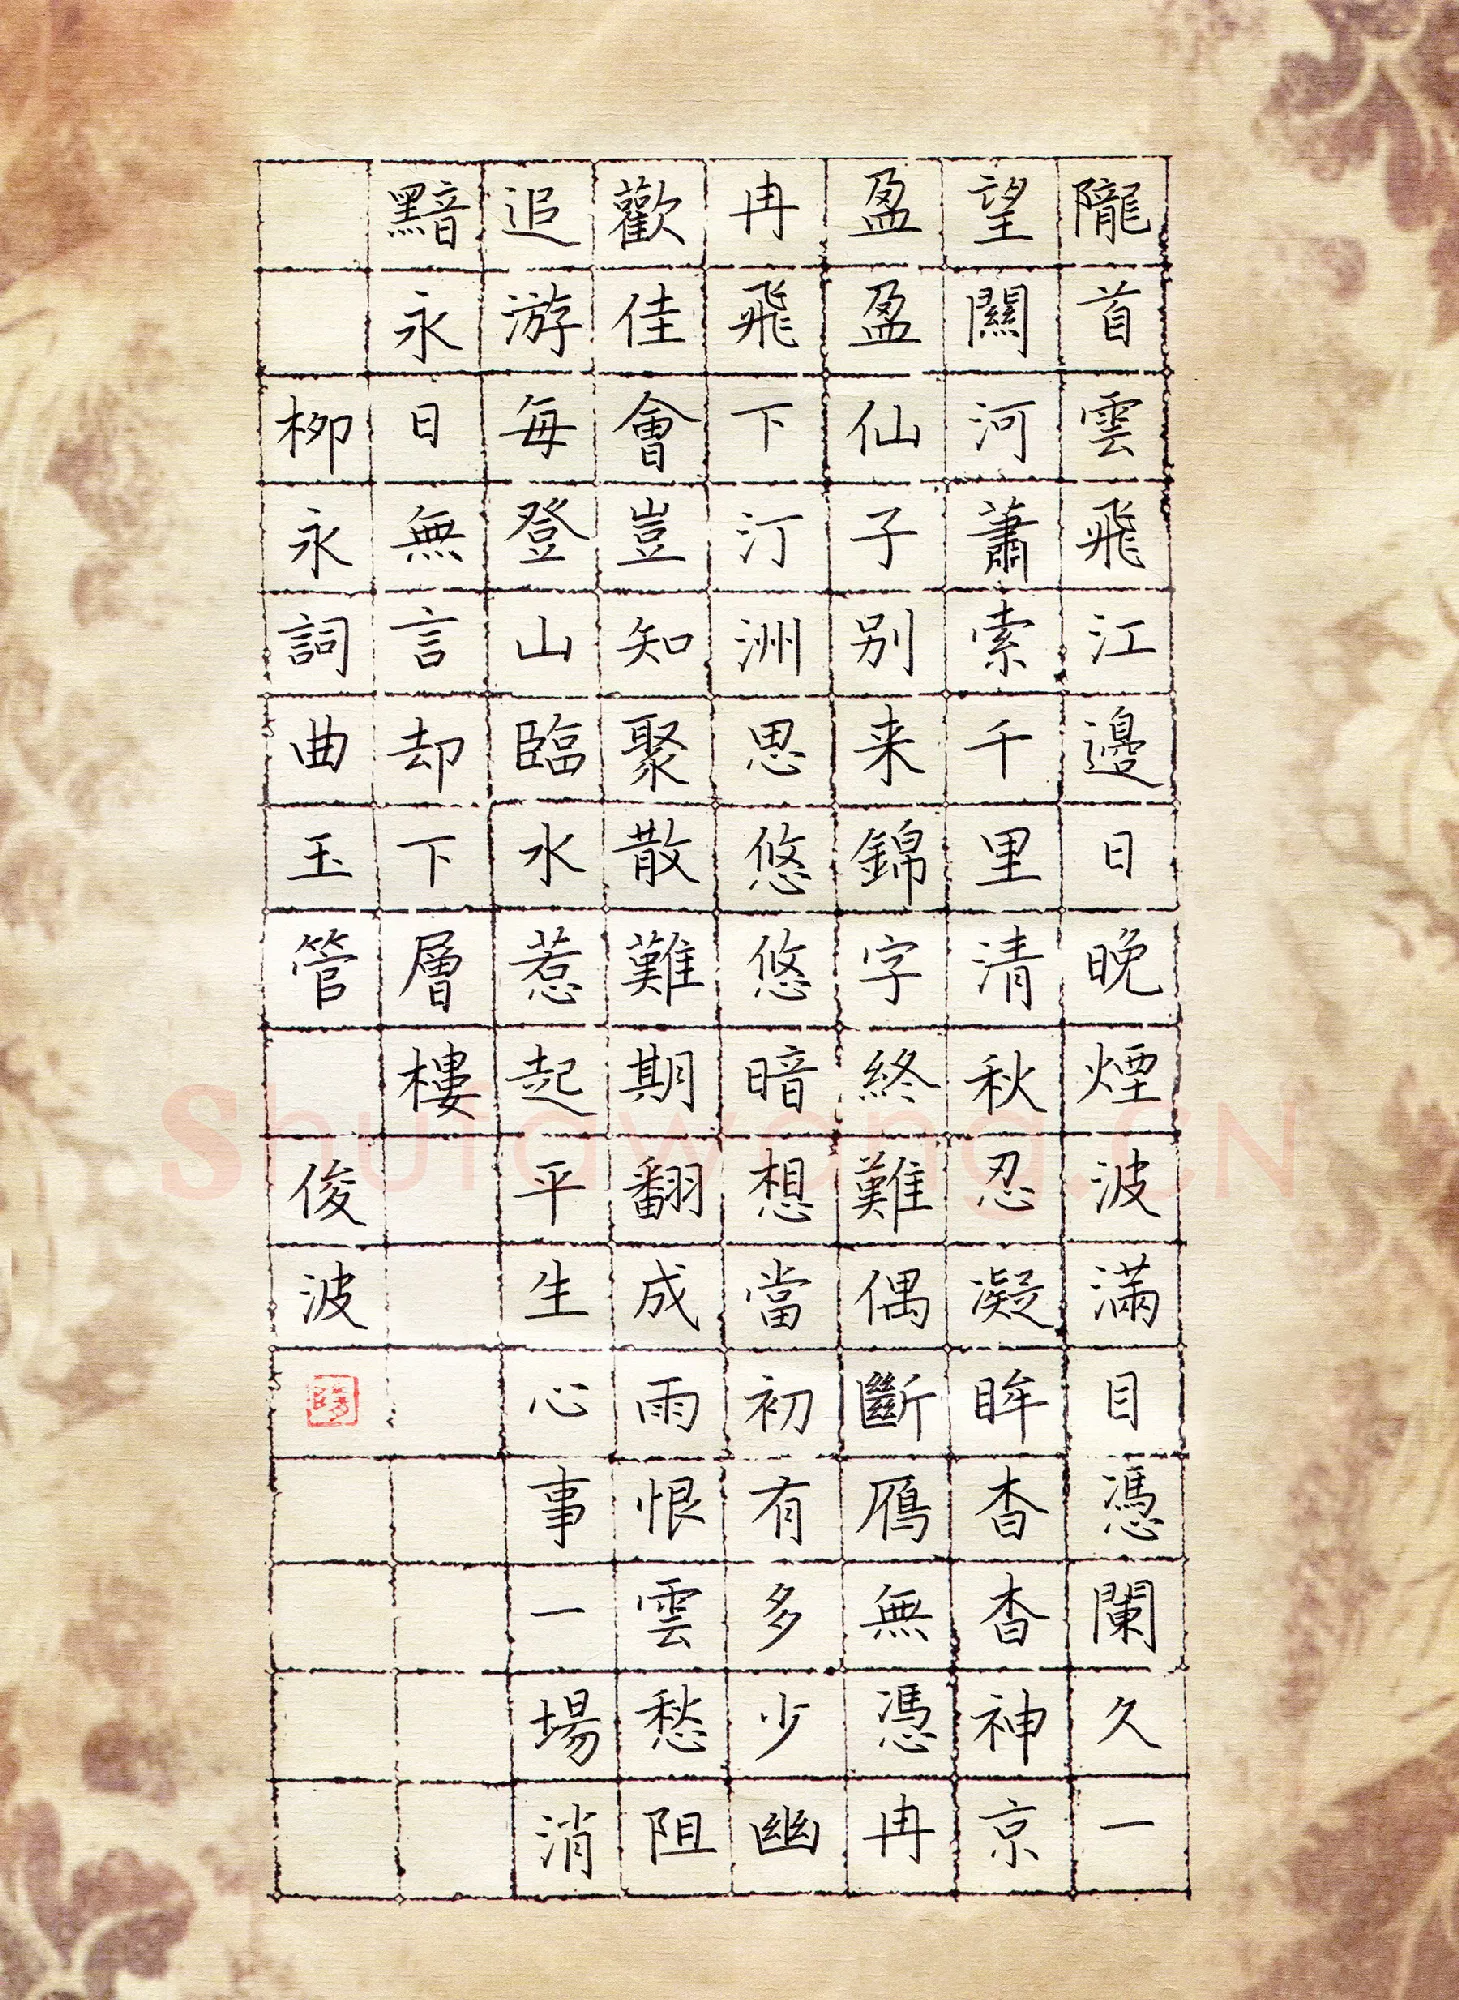 隴首雲飛江邊日晚煙波滿目憑闌久一
望關河蕭索千里清秋忍凝眸杳杳神京
盈盈仙子别来錦字終難偶斷鴈無憑冉
冉飛下汀洲思悠悠暗想當初有多少幽
歡佳會豈知聚散難期翻成雨恨雲愁阻
追游每登山臨水惹起平生心事一場消
黯永日無言却下層樓
柳永詞曲玉管 俊波
Shufawang.CN